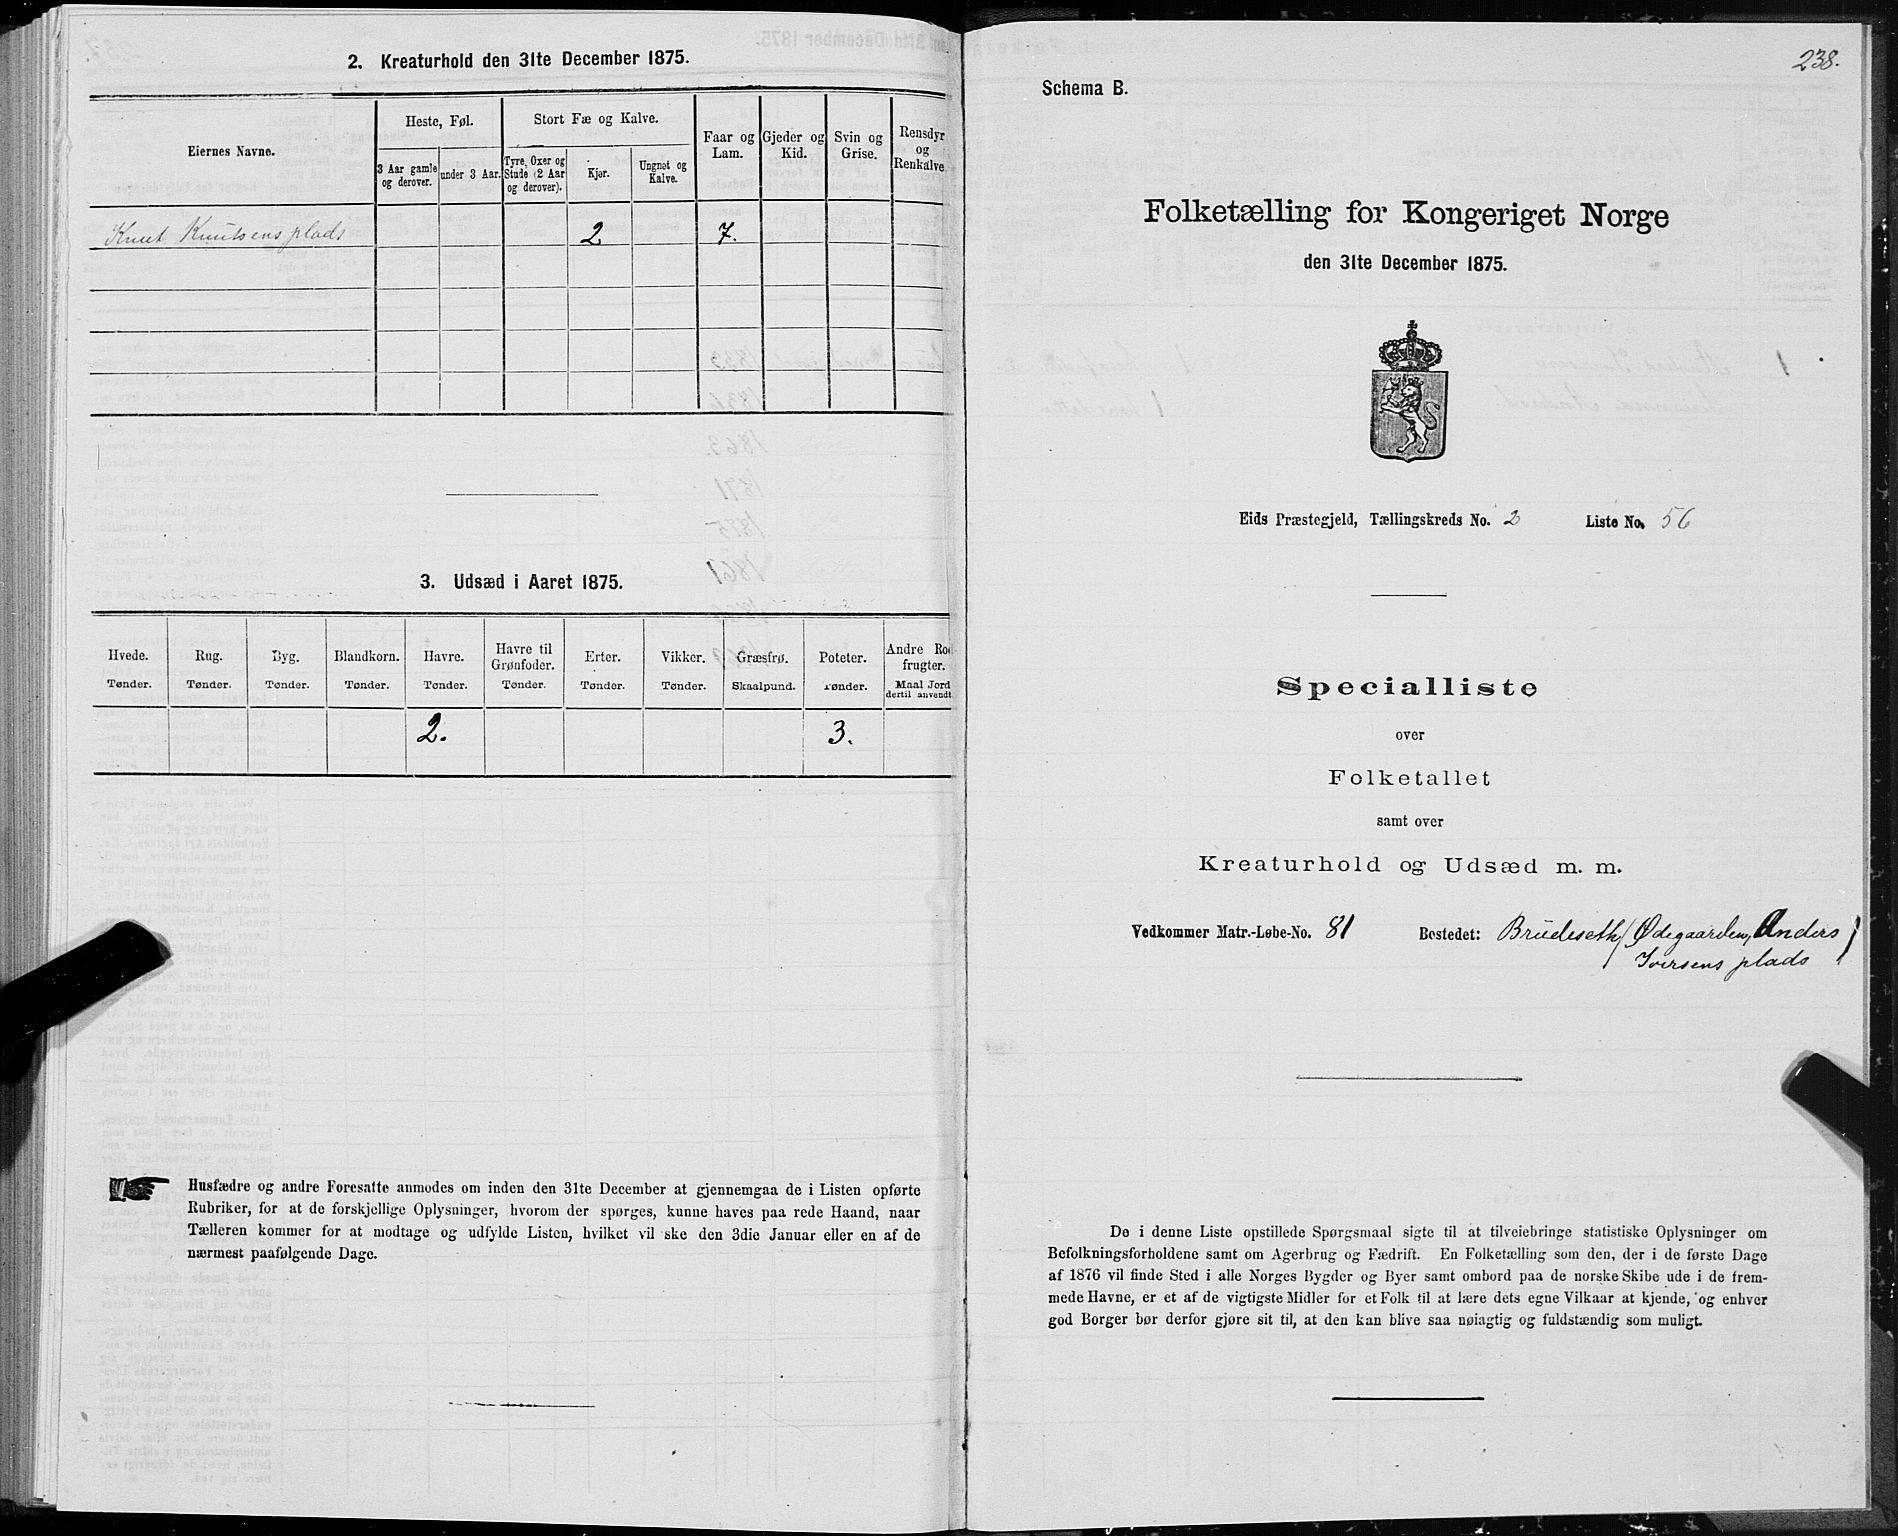 2. Kreaturhold den 31te December 1875.
Eiernes Navne.
Heste, Føl.
Stort Fæ og Kalve.
Faar og Lam.
Gjeder og Kid.
Svin og Grise.
Rensdyr og Renkalve
3 Aar gamle og derover.
under 3 Aar.
Tyre, Oxer og Stude (2 Aar og derover).
Kjør.
Ungnøt og Kalve.
Knut Knutsens plads 2 7.
3. Udsæd i Aaret 1875.
Hvede. Rug. Byg. Blandkorn. Havre. Havre til Grønfoder. Erter. Vikker. Græsfrø. Poteter. Andre Rodfrugter.
Tønder. Tønder. Tønder. Tønder. Tønder. Tønder. Tønder. Tønder. Skaalpund. Tønder. Maal Jord dertil anvendt
2. 3.
Husfædre og andre Foresatte anmodes om inden den 31te December at gjennemgaa de i Listen opførte
Rubriker, for at de forskjellige Oplysninger, hvorom der spørges, kunne haves paa rede Haand, naar
Tælleren kommer for at modtage og udfylde Listen, hvilket vil ske den 3die Januar eller en af de
nærmest paafølgende Dage.
238.
Schema B.
Folketælling for Kongeriget Norge
den 31te December 1875.
Eids Præstegjeld, Tællingskreds No. 2 Liste No. 56
Specialliste
over
Folketallet
samt over
Kreaturhold og Udsæd m. m.
Vedkommer Matr.-Løbe-No. 81 Bostedet: Brüdeseth (Ødegaarden, Anders
Iversens plads)
De i denne Liste opstillede Spørgsmaal sigte til at tilveiebringe statistiske Oplysninger om
Befolkningsforholdene samt om Agerbrug og Fædrift. En Folketælling som den, der i de første Dage
af 1876 vil finde Sted i alle Norges Bygder og Byer samt ombord paa de norske Skibe ude i de frem-
mede Havne, er et af de vigtigste Midler for et Folk til at lære dets egne Vilkaar at kjende, og enhver
god Borger bør derfor gjøre sit til, at den kan blive saa nøiagtig og fuldstændig som muligt.